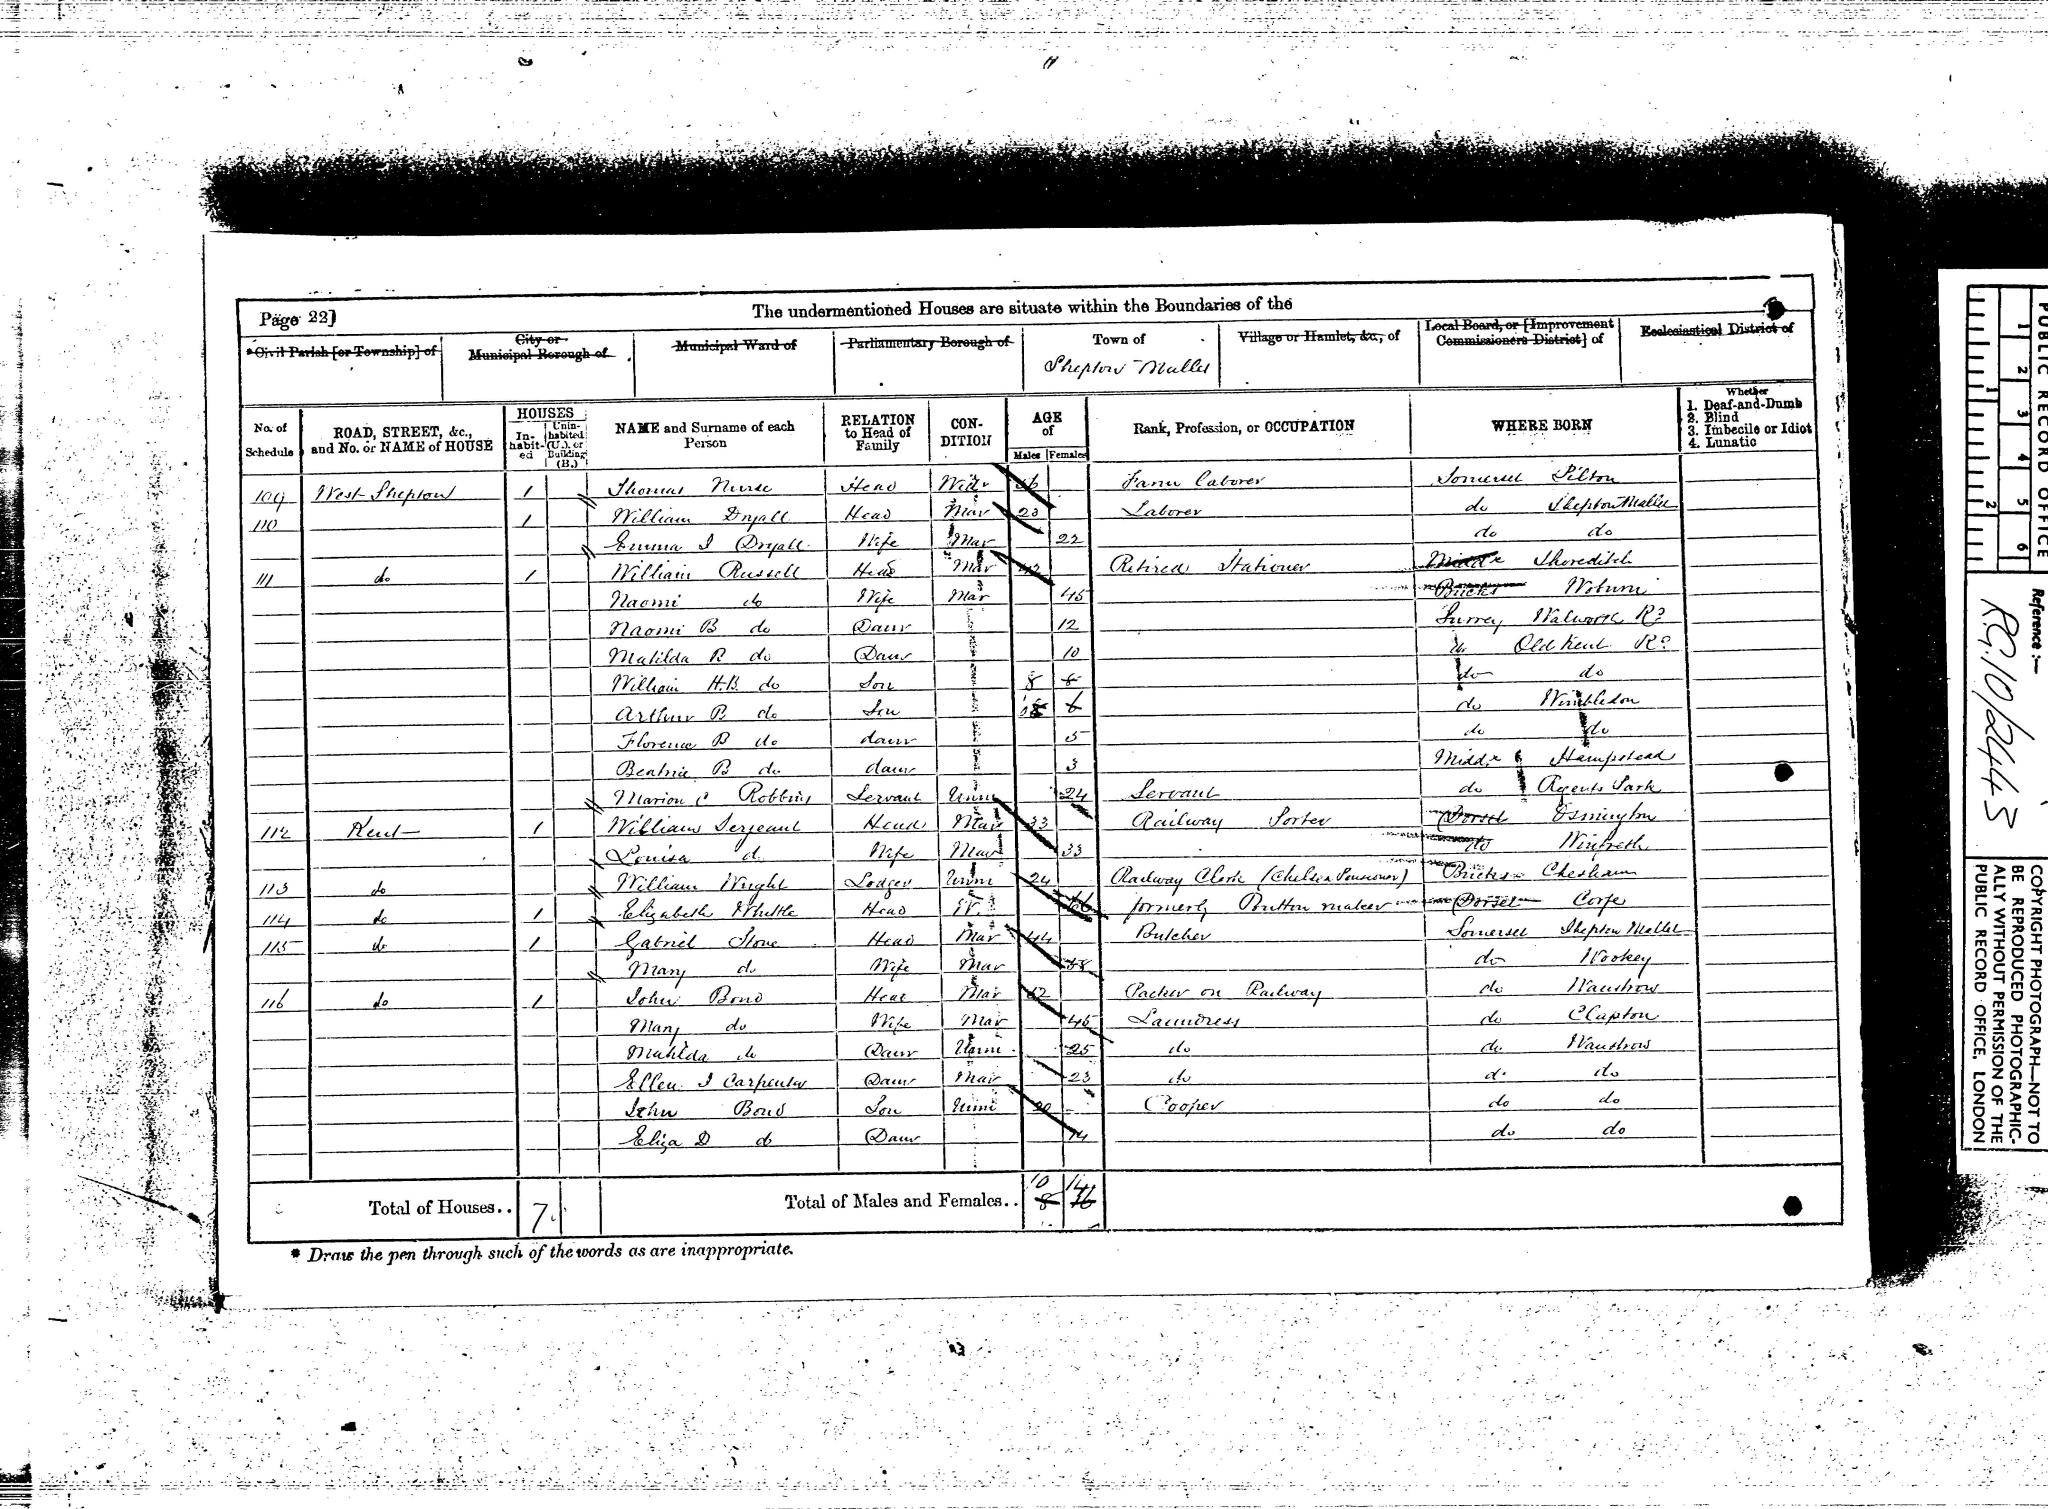 Page 22]
The undermentioned Houses are situate within the Boundaries of the
*Civil Parish [or Township] of
City or Municipal Borough of
Municipal Ward of
Parliamentary Borough of
Town of
Shepton Mallet
Village or Hamlet, &c., of
Local Board, or [Improvement Commissioners District] of
Ecclesiastical District of
No. of Schedule
ROAD, STREET, &c., and No. or NAME of HOUSE
HOUSES
In-habit-ed
Unin-habited (U.), or Building (B.)
NAME and Surname of each Person
RELATION to Head of Family
CON-DITION
AGE of
Males Females
Rank, Profession, or OCCUPATION
WHERE BORN
Whether
1. Deaf-and-Dumb
2. Blind
3. Imbecile or Idiot
4. Lunatic
109 West Shepton 1 Thomas Nurse Head Widr Farm Laborer Somerset Pilton
110 1 William Dryall Head Mar 23 Laborer do Shepton Mallet
Emma J Dryall Wife Mar 22 do do
111 do 1 William Russell Head Mar 42 Retired Stationer Middx Shoreditch
Naomi do Wife Mar 45 Bucks Woburn
Naomi B do Daur 12 Surrey Walworth Rd
Matilda B do Daur 10 do Old Kent Rd
William H.B. do Son 8 8 do do
Arthur B do Son 6 do Wimbledon
Florence B do daur 5 do do
Beatrice B do daur 3 Middx Hampstead
Marion C Robbins Servant Unm 24 Servant do Regents Park
112 Kent 1 William Serjeant Head Mar 33 Railway Porter Dorset Osmington
Louisa do Wife Mar 33 do Winfreth
113 do William Wright Lodger Unm 24 Railway Clerk (Chelsea Pensioner) Bucks Chesham
114 do 1 Elizabeth Whittle Head W. 66 formerly Button maker Dorset Corfe
115 do 1 Gabriel Stone Head Mar 44 Butcher Somerset Shepton Mallet
Mary do Wife Mar 38 do Wookey
116 do 1 John Bond Head Mar 52 Packer on Railway do Wanstrow
Mary do Wife Mar 45 Laundress do Clapton
Matilda do Daur Unm 25 do do Wanstrow
Ellen J Carpenter Daur Mar 23 do do do
John Bond Son Unm 20 Cooper do do
Eliza D do Daur 14 do do
Total of Houses.. 7
Total of Males and Females.. 10 14
8 16
* Draw the pen through such of the words as are inappropriate.
PUBLIC RECORD OFFICE
1 2 3 4 5 6
1 2
Reference :—
R.G.10/2443
COPYRIGHT PHOTOGRAPH—NOT TO
BE REPRODUCED PHOTOGRAPHIC-
ALLY WITHOUT PERMISSION OF THE
PUBLIC RECORD OFFICE, LONDON